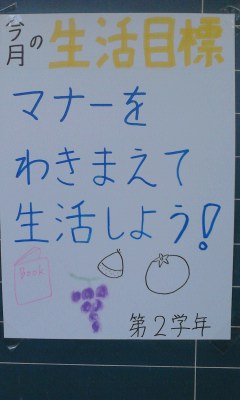 今月の生活目標
マナーを
わきまえて
生活しよう!
Book
第2学年